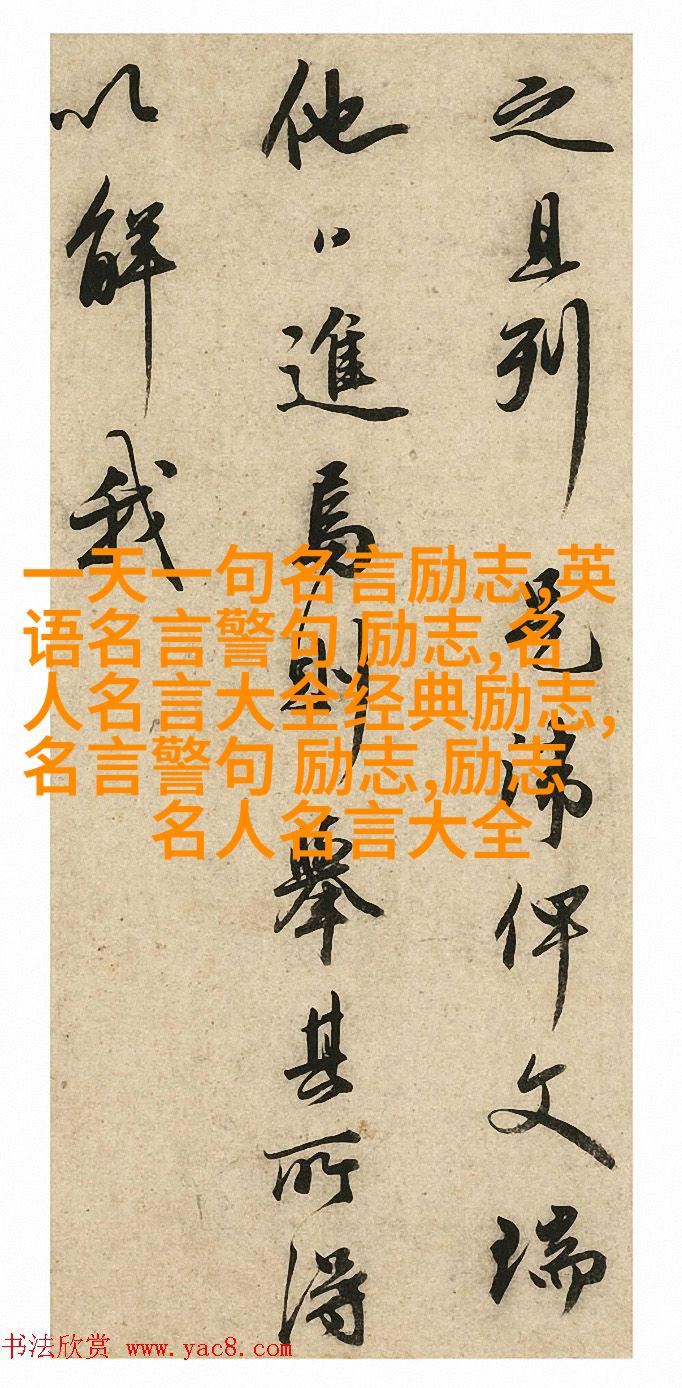 之且列邑俾文瑞
他日進焉則舉其所得
以解我
一天一句名言励志,英
语名言警句 励志,名
人名言大全经典励志,
名言警句 励志,励志
名人名言大全
书法欣赏 www.yac8.com